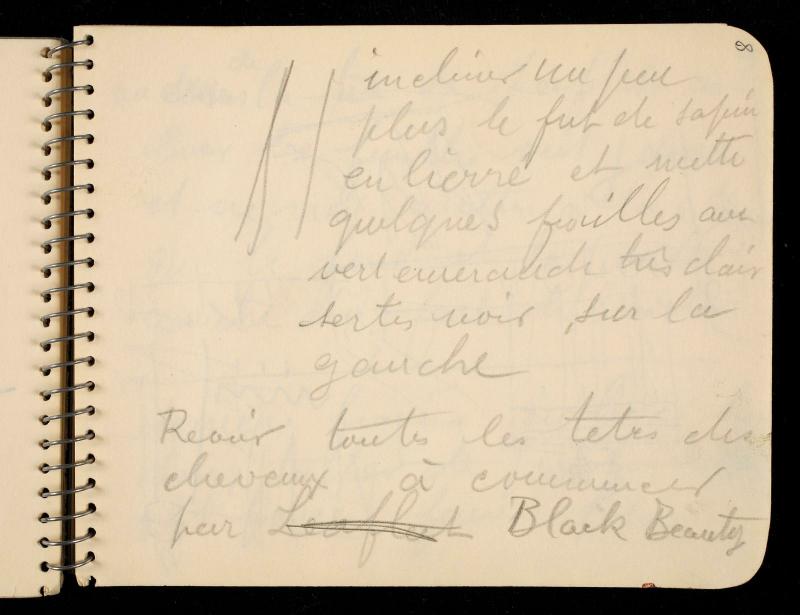 8
incliner un peu
plus le fut de sapin
en lierre et mettre
quelques feuilles avec
vert emeraude très clair
sertis noir, sur la
gauche
Revoir toutes les tetes des
chevaux à commencer
par Black Beauty